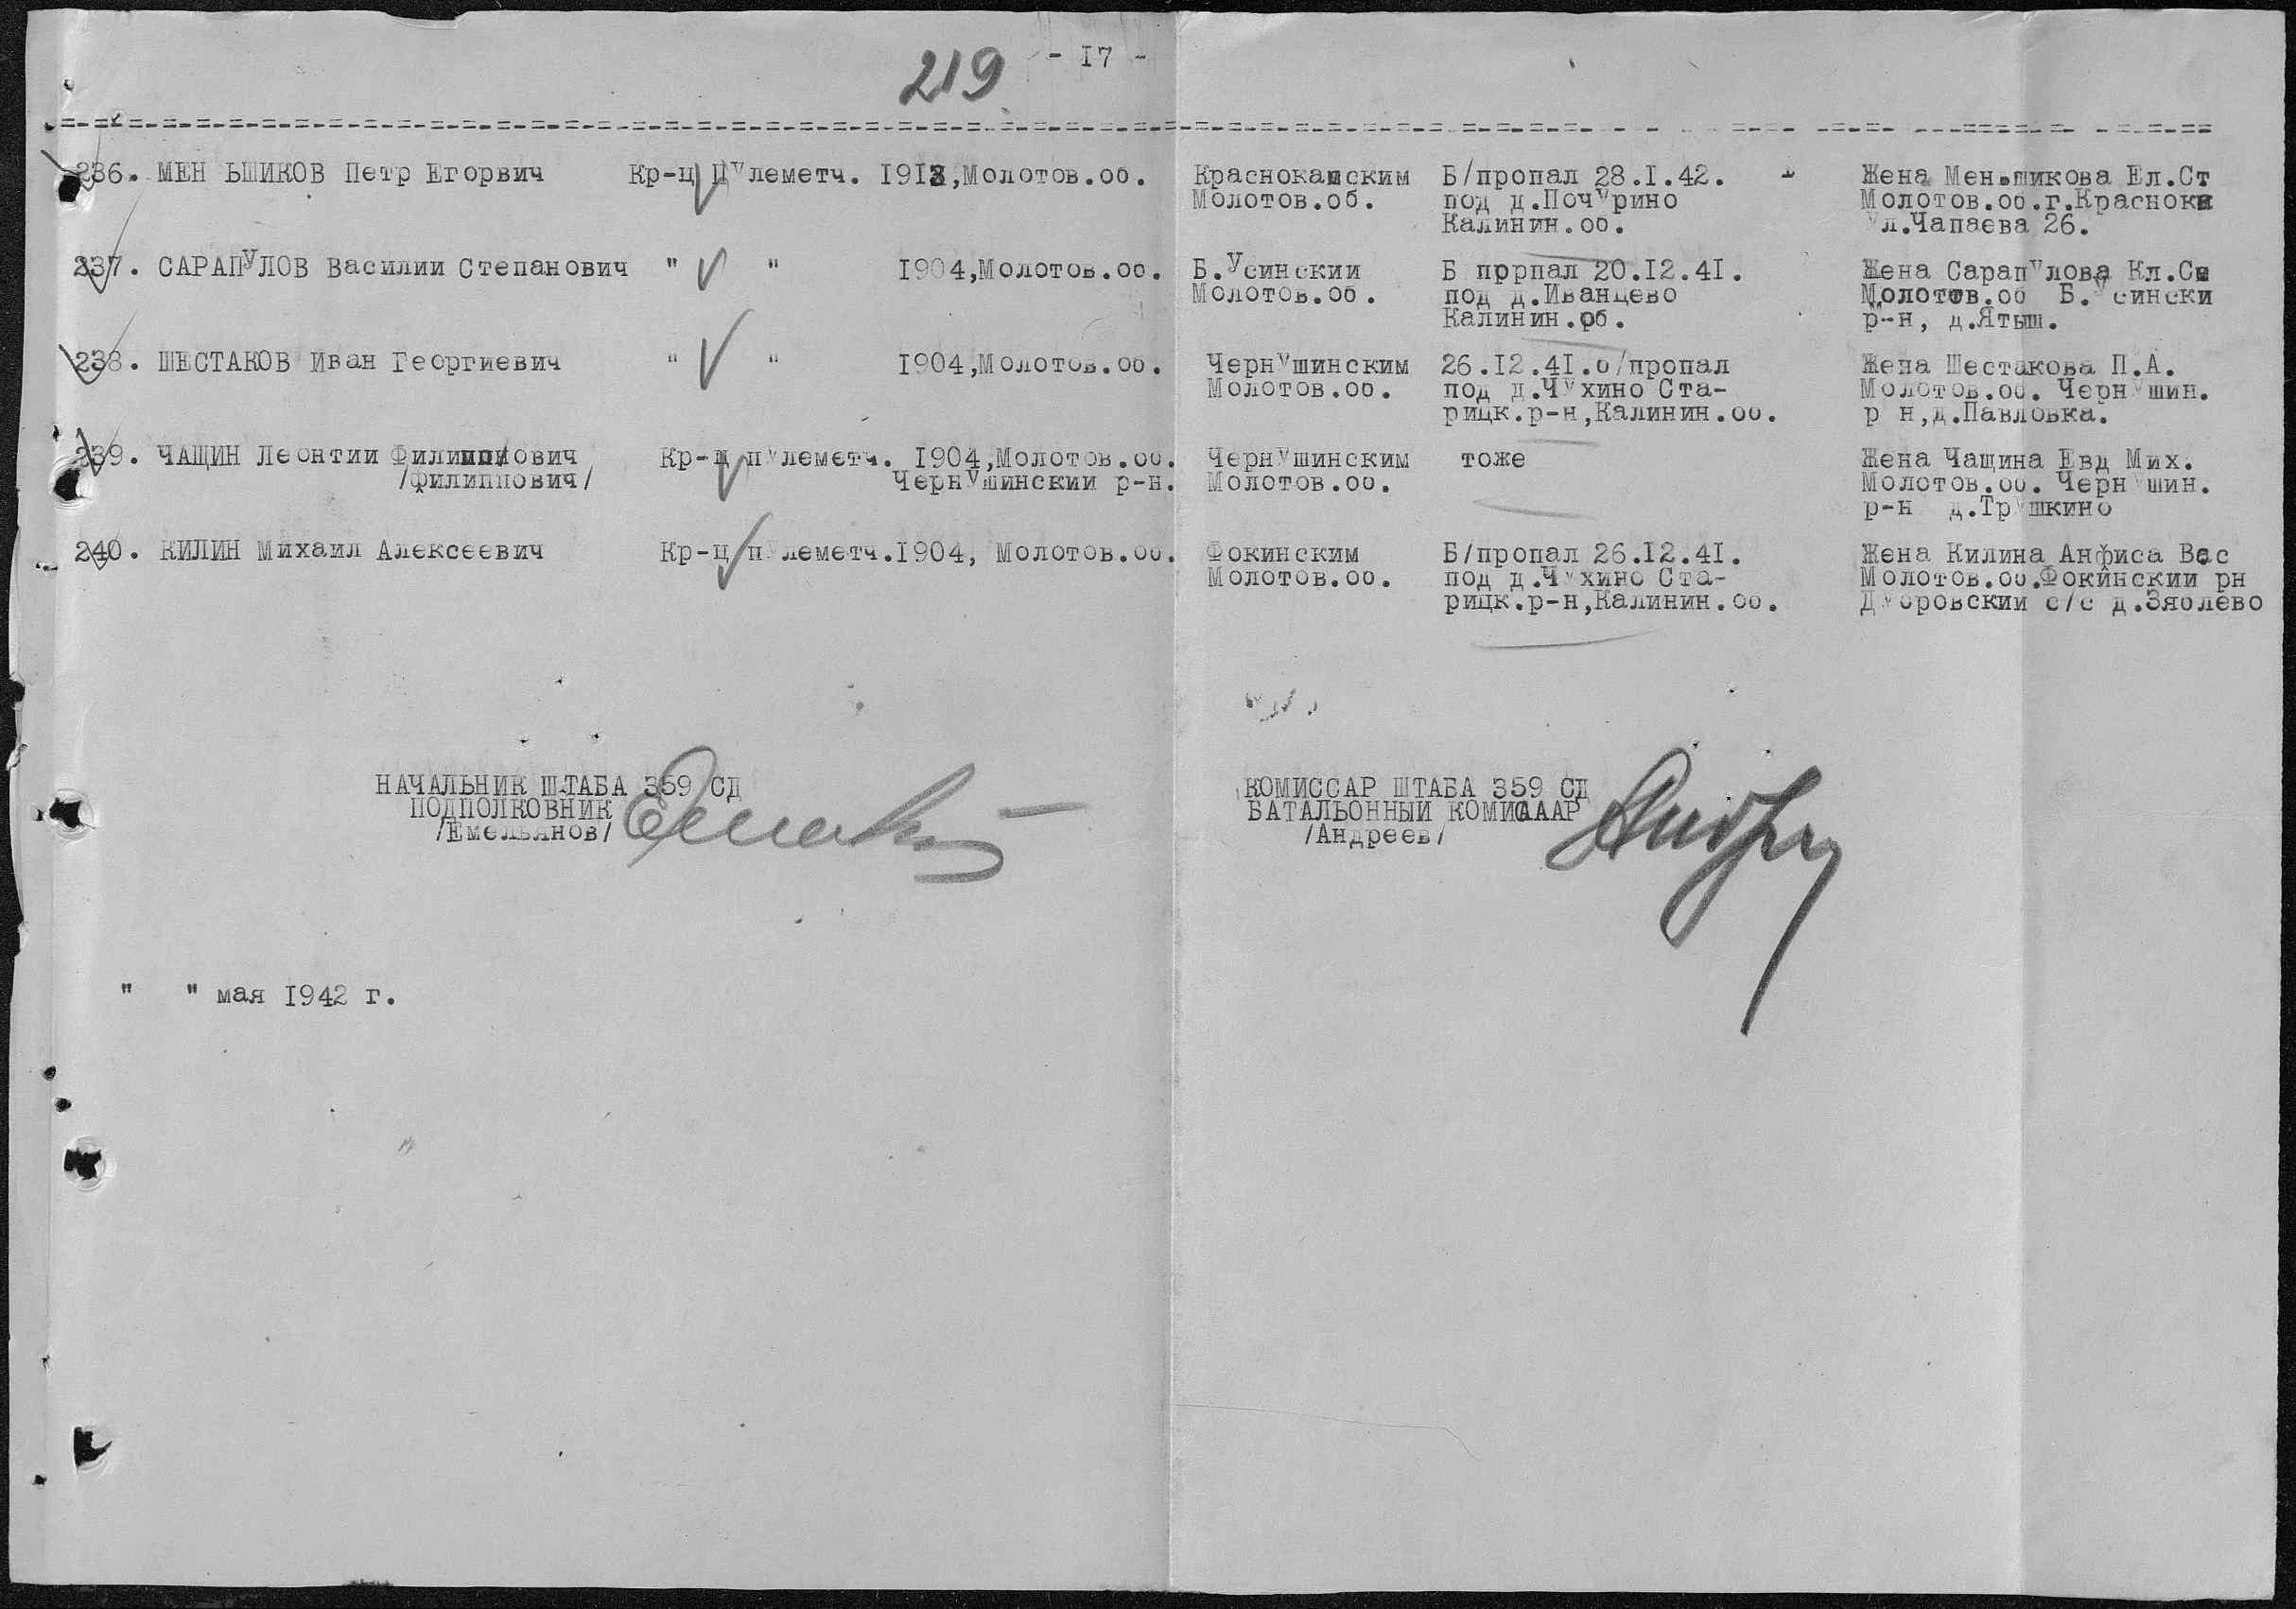 219 - I7 -
=-=-=-=-=-=-=-=-=-=-=-=-=-=-=-=-=-=-=-=-=-=-=-=-=-=-=-=-=-=-=-=-=
236. МЕН ЬШИКОВ Петр Егорвич Кр-ц Пулеметч. I9I3,Молотов.об. Краснокамским Б/пропал 28.I.42. Жена Меньшикова Ел.Ст
Молотов.об. под д.Почурино Молотов.об.г.Краснока
Калинин.об. ул.Чапаева 26.
237. САРАПУЛОВ Василий Степанович " " I904,Молотов.об. Б.Усинский Б прпрал 20.I2.4I. Жена Сарапулова Кл.Се
Молотов.об. под д.Иванцево Молотов.об Б.Усински
Калинин.об. р-н, д.Ятыш.
238. ШЕСТАКОВ Иван Георгиевич " " I904,Молотов.об. Чернушинским 26.I2.4I.б/пропал Жена Шестакова П.А.
Молотов.об. под д.Чухино Ста- Молотов.об. Чернушин.
рицк.р-н,Калинин.об. р н,д.Павловка.
239. ЧАЩИН Леонтий Филиппович Кр-ц пулеметч. I904,Молотов.об. Чернушинским тоже Жена Чащина Евд Мих.
/Филиппович/ Чернушинский р-н. Молотов.об. Молотов.об. Чернушин.
р-н д.Трушкино
240. КИЛИН Михаил Алексеевич Кр-ц пулеметч.I904, Молотов.об. Фокинским Б/пропал 26.I2.4I. Жена Килина Анфиса Вас
Молотов.об. под д.Чухино Ста- Молотов.об.Фокинский рн
рицк.р-н,Калинин.об. Дубровский с/с д.Зяблево
НАЧАЛЬНИК ШТАБА 359 СД КОМИССАР ШТАБА 359 СД
ПОДПОЛКОВНИК БАТАЛЬОННЫЙ КОМИСААР
/Емельянов/ /Андреев/
" " мая I942 г.